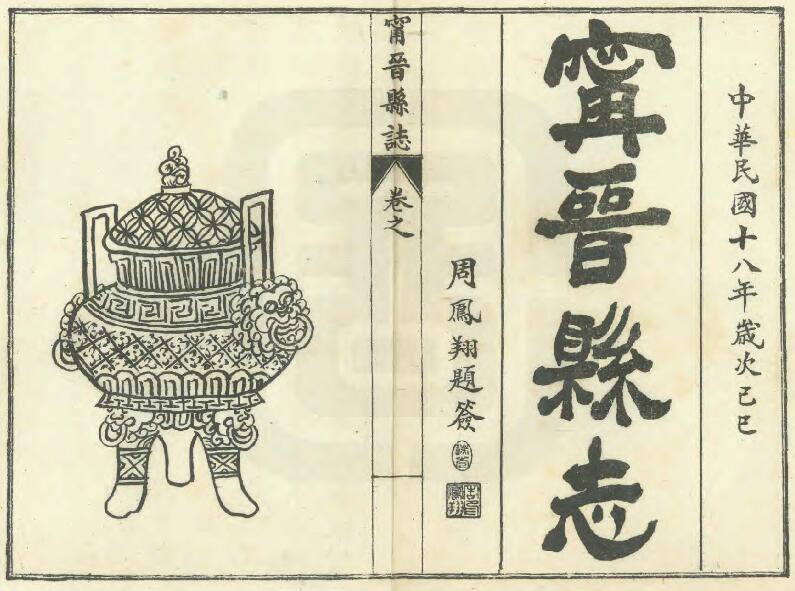 中華民國十八年歲次己巳
甯晉縣志
周鳳翔題簽
甯晉縣誌
卷之